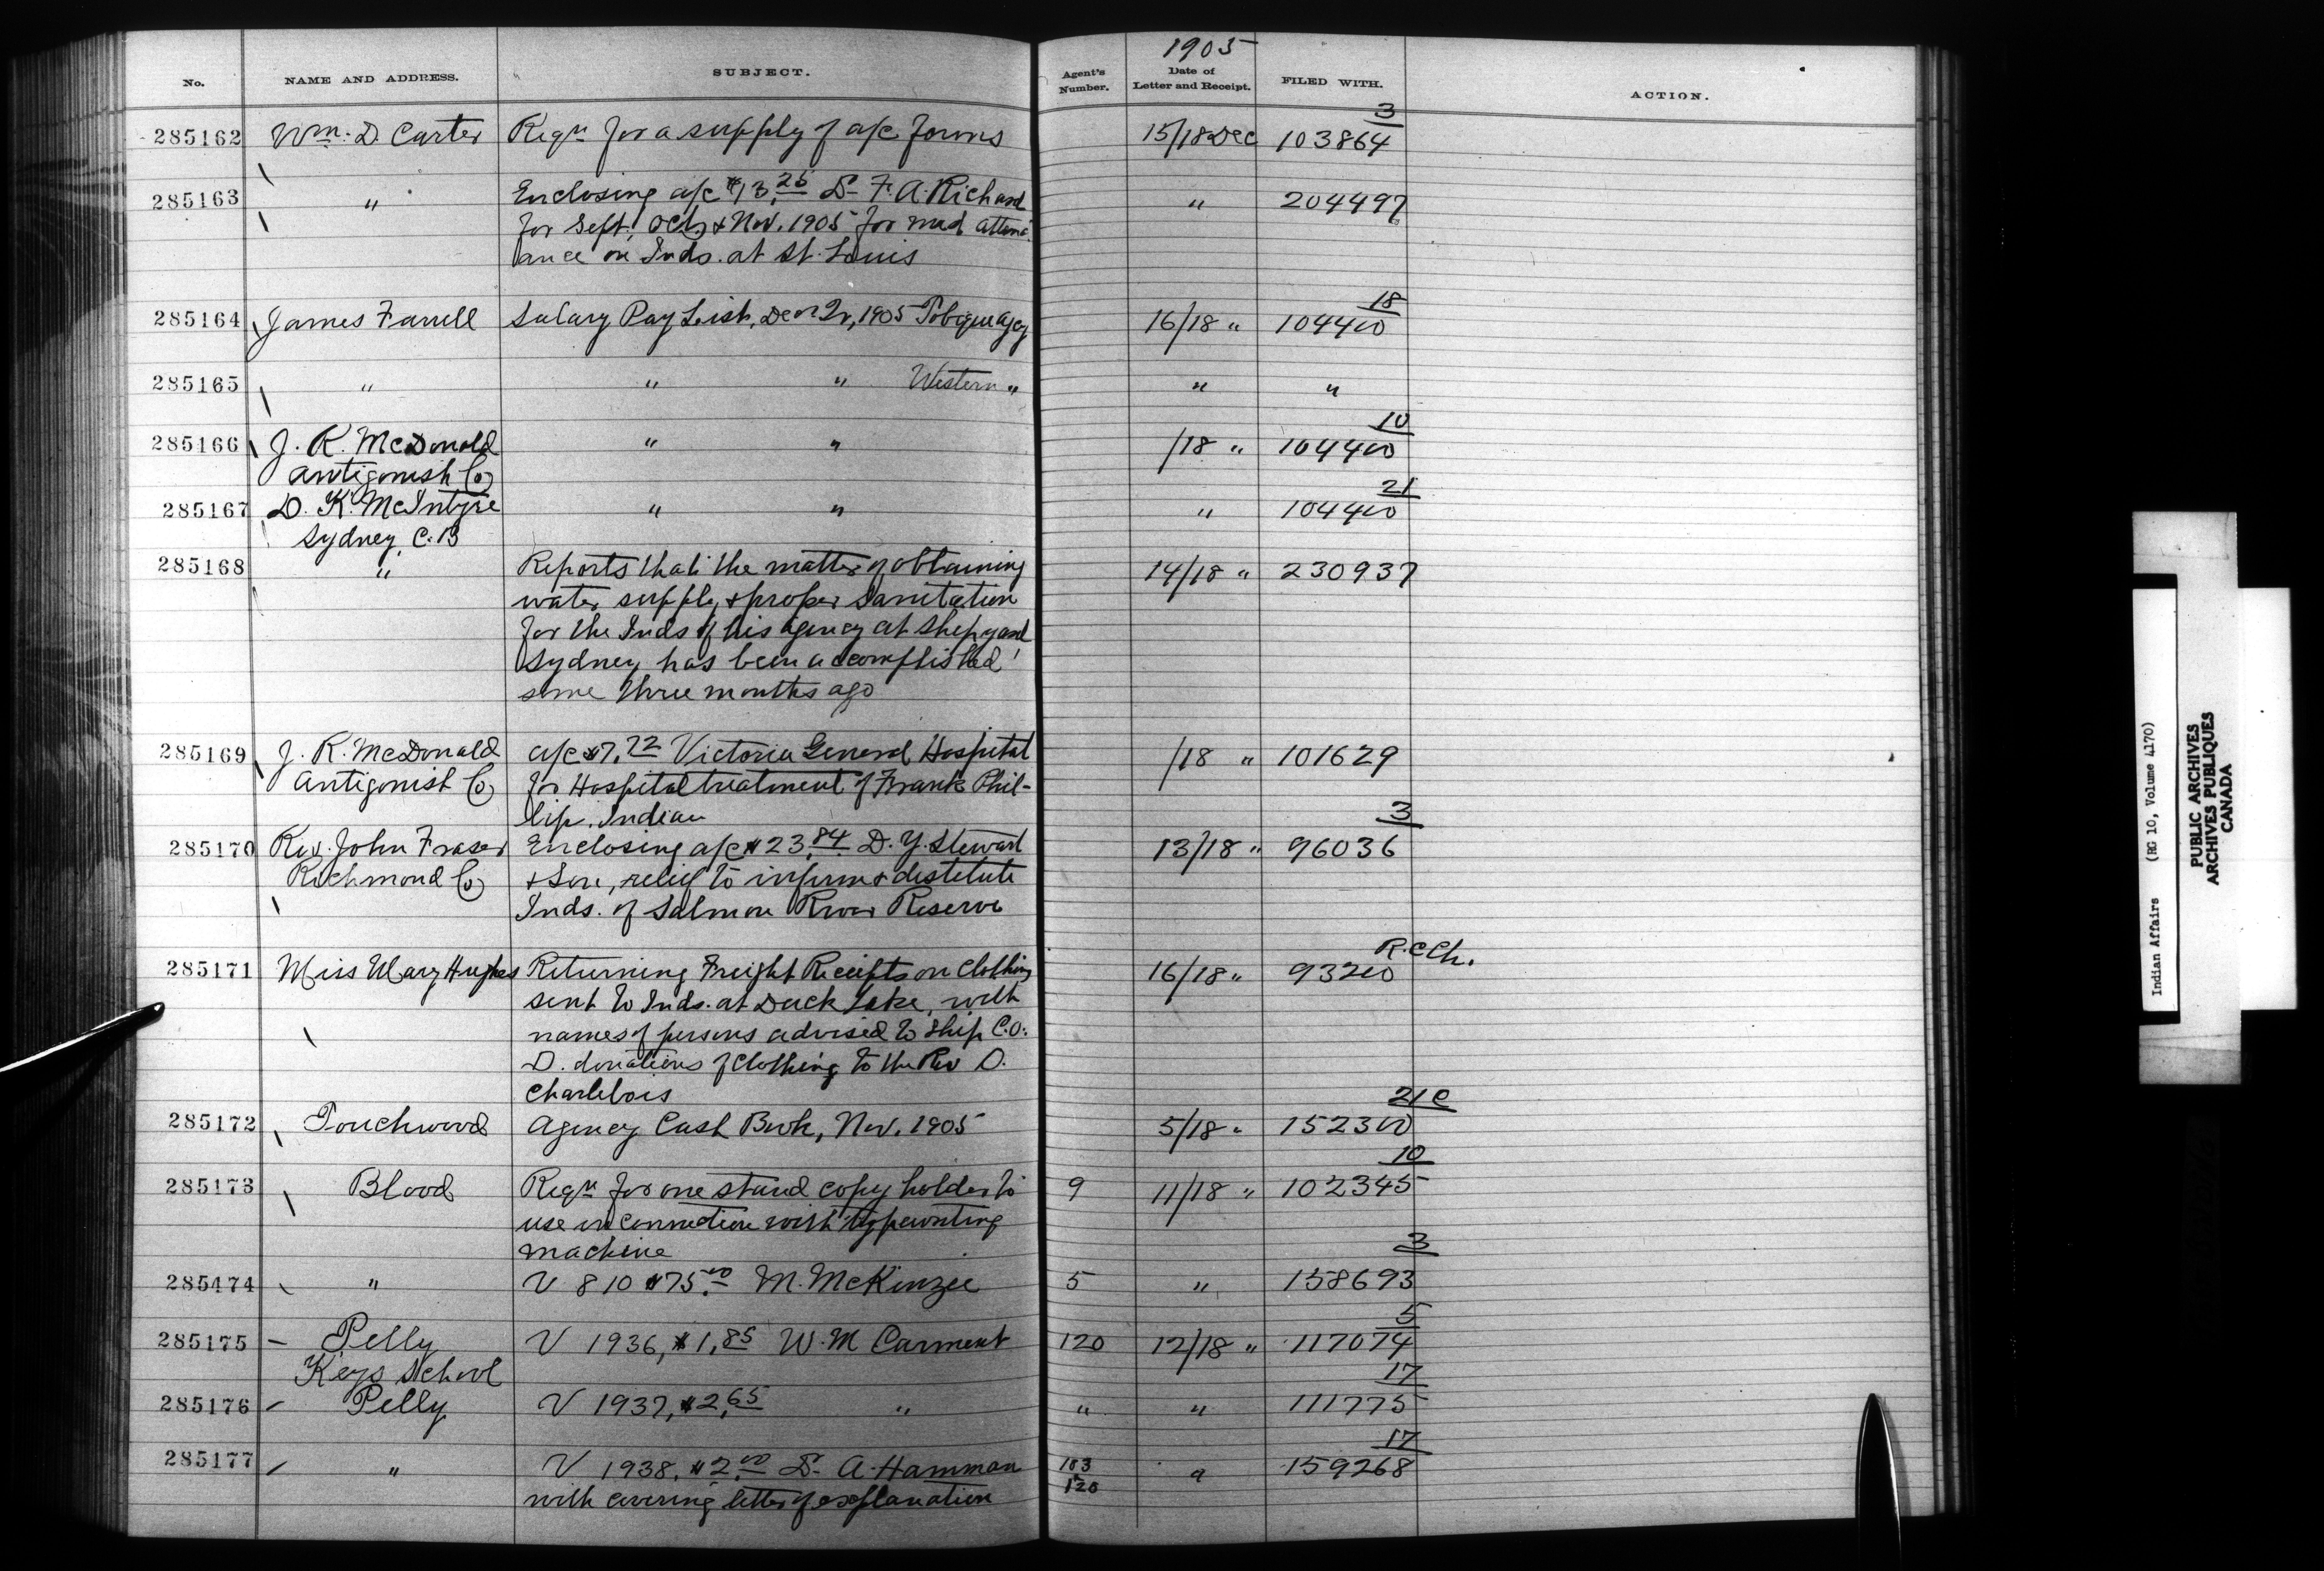 1905
No. NAME AND ADDRESS. SUBJECT. Agent's Number. Date of Letter and Receipt. FILED WITH. ACTION.
3
285162 Wm. D. Carter Reqn for a supply of a/c forms 15/18 Dec 103864
285163 " Enclosing a/c $13.25 Dr F. A. Richard " 204497
for Sept, Oct, & Nov. 1905 for med attend-
ance on Inds. at St. Louis
18
285164 James Farrell Salary Pay List, Decr Qr, 1905 Tobique Agcy 16/18 " 104400
285165 " " " Western " " "
10
285166 J. R. McDonald " " /18 " 104400
Antigonish Co
21
285167 D. K. McIntyre " " " 104400
Sydney, C.B
285168 " Reports that the matter of obtaining 14/18 " 230937
water supply & proper sanitation
for the Inds of his agency at Shipyard
Sydney has been accomplished
some three months ago
285169 J. R. McDonald a/c $7.72 Victoria General Hospital /18 " 101629
Antigonish Co for Hospital treatment of Frank Phil-
lip, Indian
3
285170 Rev. John Fraser Enclosing a/c $23.84 D. Y. Stewart 13/18 " 96036
Richmond Co & Son, relief to infirm & destitute
Inds. of Salmon River Reserve
R.C Ch.
285171 Miss Mary Hughes Returning Freight Receipts on Clothing 16/18 " 93200
sent to Inds. at Duck Lake, with
names of persons advised to ship C.O.
D. donations of clothing to the Rev O.
Charlebois
21C
285172 Touchwood Agency Cash Book, Nov. 1905 5/18 " 152300
10
285173 Blood Reqn for one stand copy holder to 9 11/18 " 102345
use in connection with typewriting
machine
3
285174 " V 810 $75.00 M. McKenzie 5 " 158693
5
285175 Pelly V 1936, $1.85 W. M Carment 120 12/18 " 117074
Keys School
17
285176 Pelly V 1937, $2.65 " " " 111775
17
285177 " V 1938, $2.00 Dr A. Hamman 183 " 159268
with covering letter of explanation & 120
Indian Affairs (RG 10, Volume 4170)
PUBLIC ARCHIVES
ARCHIVES PUBLIQUES
CANADA